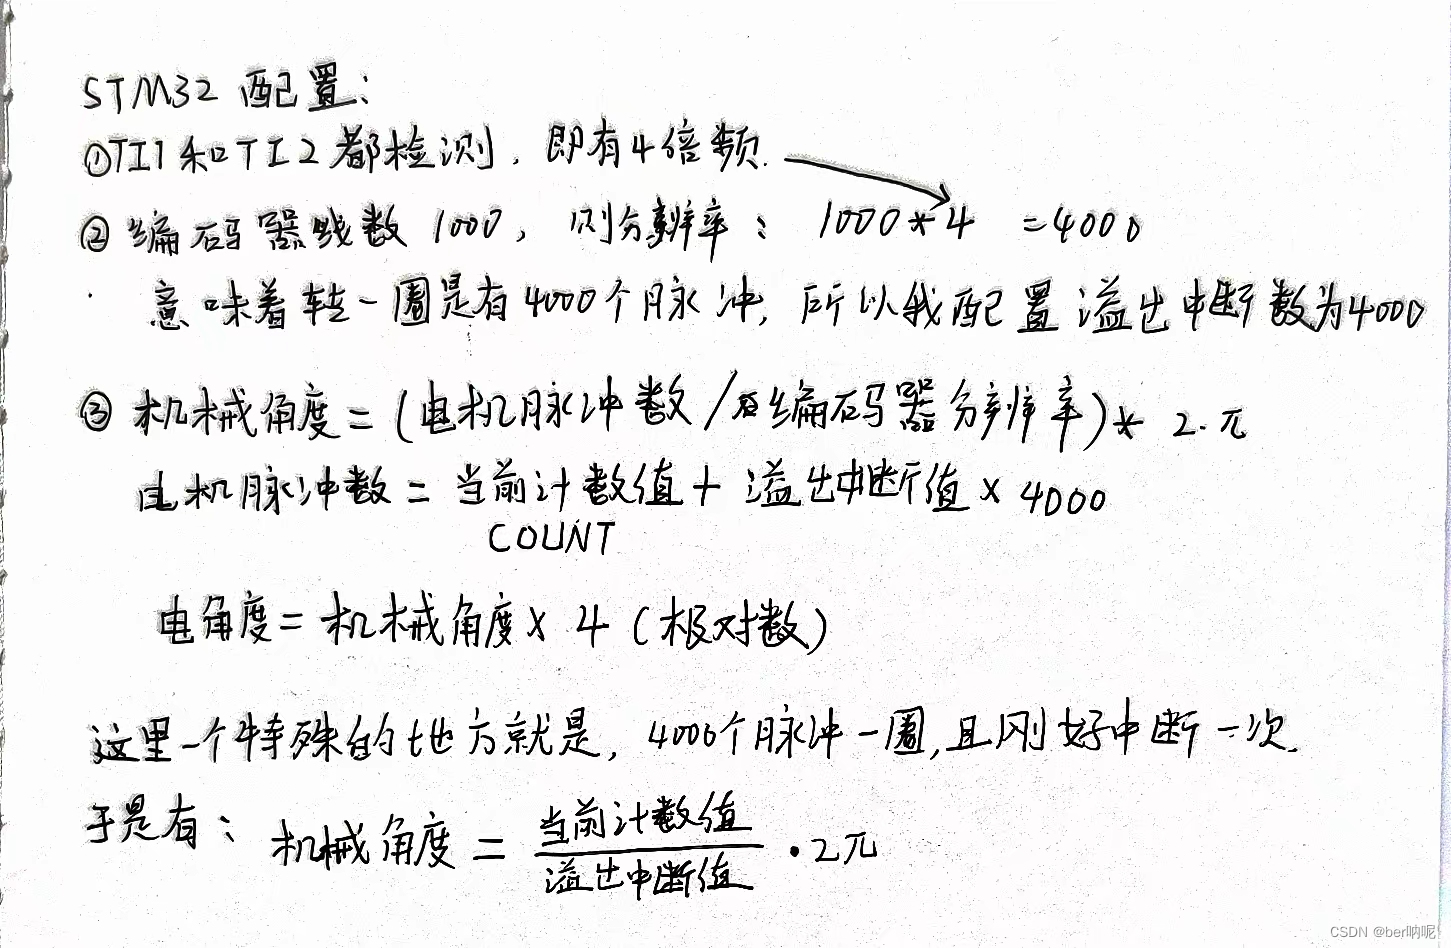 STM32 配置：
①TI1和TI2都检测，即有4倍频.
②编码器线数1000，则分辨率：1000*4 =4000
意味着转一圈是有4000个脉冲，所以我配置溢出中断数为4000
③机械角度=(电机脉冲数/编码器分辨率)* 2·π
电机脉冲数=当前计数值+溢出中断值×4000
COUNT
电角度=机械角度×4（极对数）
这里一个特殊的地方就是，4000个脉冲一圈,且刚好中断一次.
于是有：机械角度=当前计数值/溢出中断值·2π
CSDN @ber呐呢